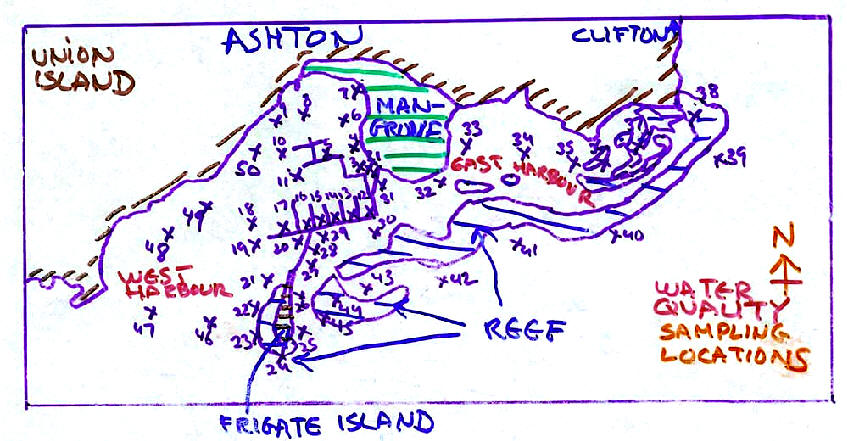 UNION
ISLAND
ASHTON
CLIFTON
MAN-
GROVE
EAST HARBOUR
WEST
HARBOUR
REEF
FRIGATE ISLAND
N
WATER
QUALITY
SAMPLING
LOCATIONS
38
39
40
41
42
43
44
45
46
47
48
49
50
33
34
35
32
31
30
29
28
27
25
24
23
22
21
20
19
18
17
16
15
14
13
12
11
10
9
8
7
6
5